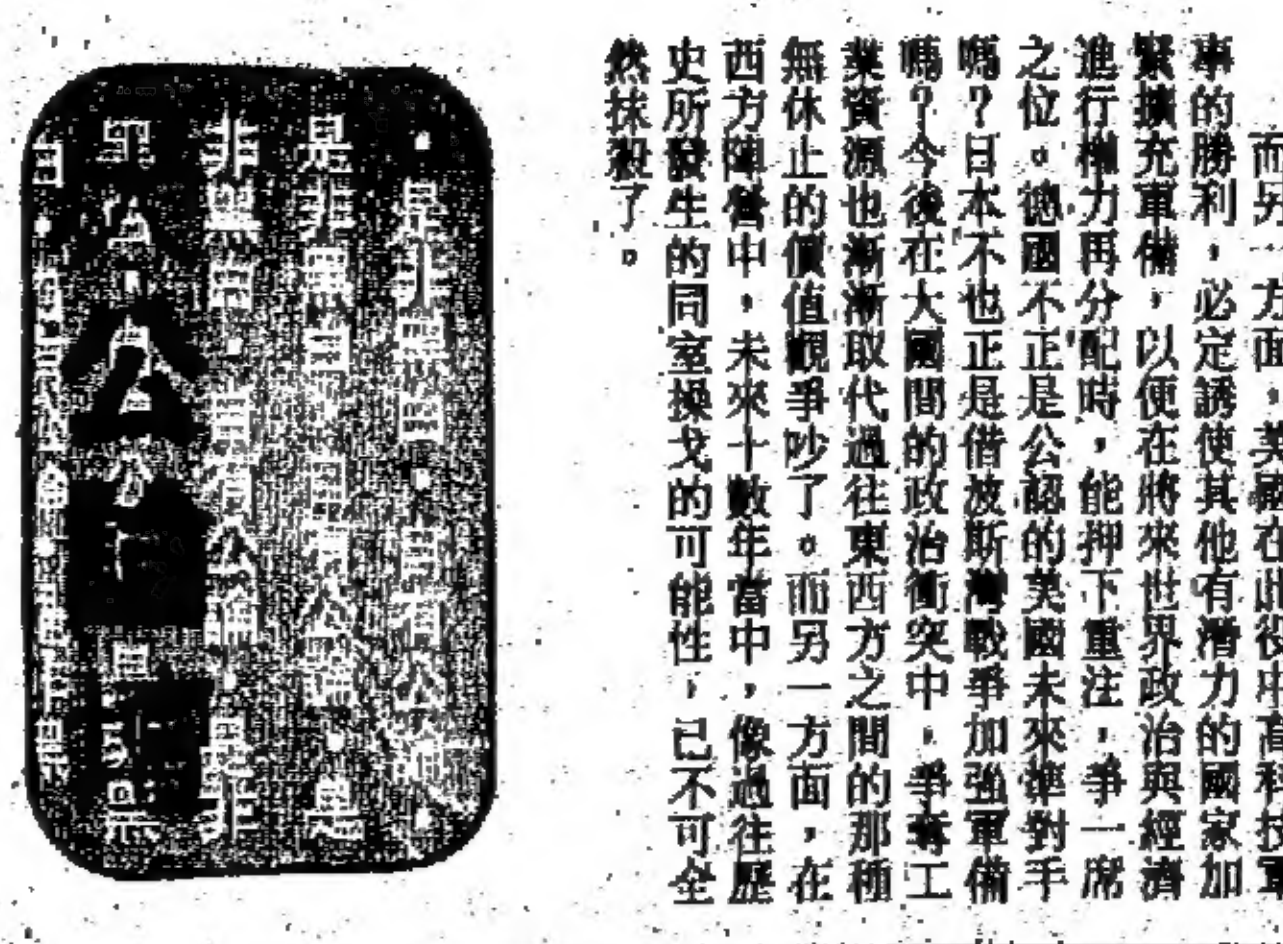 而另一方面，美國在此役中高科技軍
事的勝利，必定誘使其他有潛力的國家加
緊擴充軍備，以便在將來世界政治與經濟
進行權力再分配時，能押下重注，爭一席
之位。德國不正是公認的美國未來準對手
嗎？日本不也正是借波斯灣戰爭加強軍備
嗎？今後在大國間的政治衝突中，爭奪工
業資源也漸漸取代過往東西方之間的那種
無休止的價值觀爭吵了。而另一方面，在
西方陣營中，未來十數年當中，像過往歷
史所發生的同室操戈的可能性，已不可全
然抹殺了。
·是非黑白·自有公論·
是非黑白·自有公論·是
非黑白·自有公論·是非